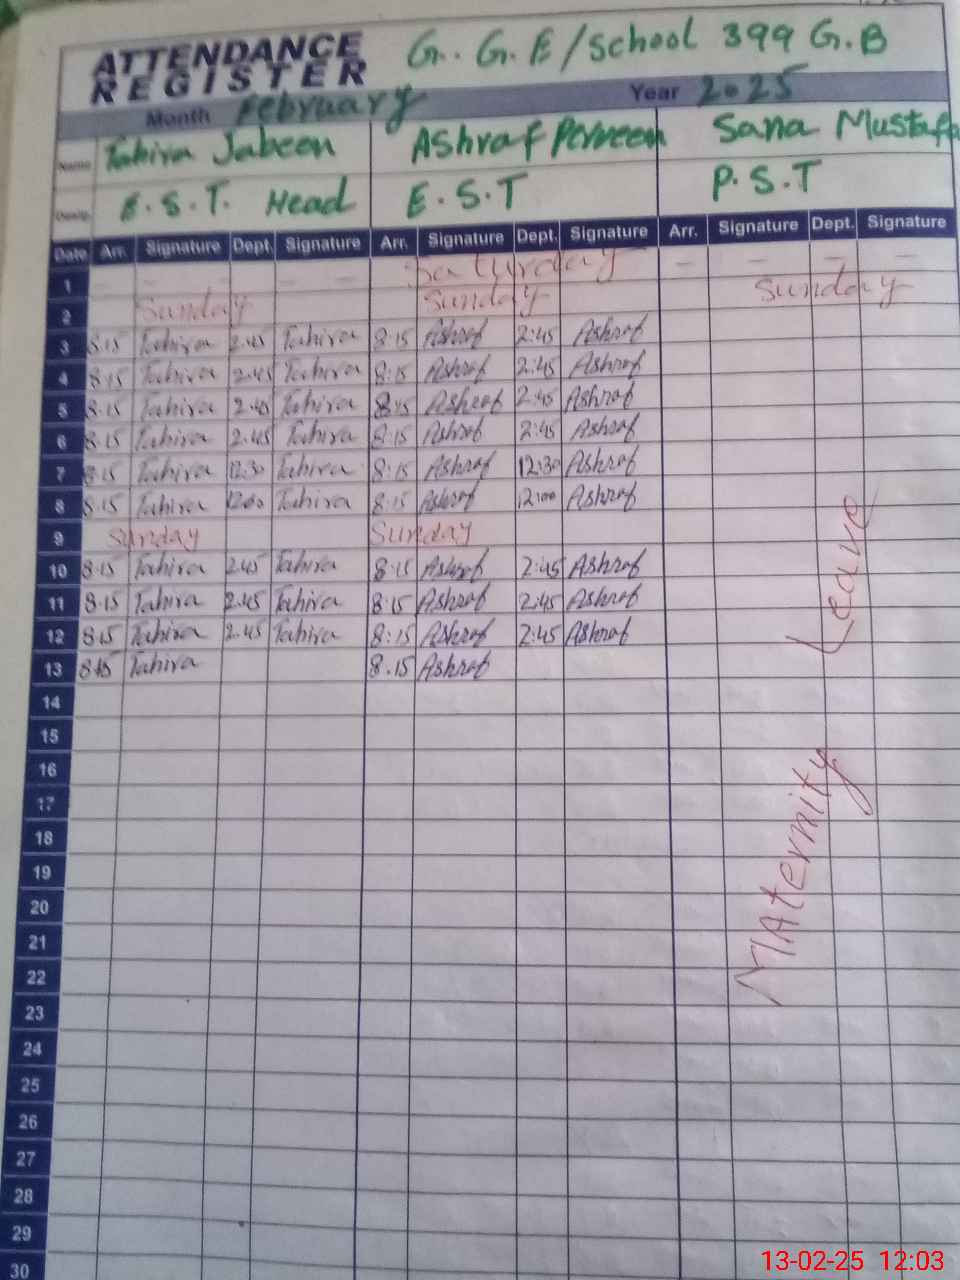 ATTENDANCE REGISTER G. G. E/School 399 G.B
Month February Year 2025
Name Tahira Jabeen Ashraf Perveen Sana Mustafa
Desig. E.S.T. Head E.S.T P.S.T
Date Arr. Signature Dept. Signature Arr. Signature Dept. Signature Arr. Signature Dept. Signature
1 - - - - Saturday - - - -
2 Sunday Sunday Sunday
3 8:15 Tahira 2:45 Tahira 8:15 Ashraf 2:45 Ashraf
4 8:15 Tahira 2:45 Tahira 8:15 Ashraf 2:45 Ashraf
5 8:15 Tahira 2:45 Tahira 8:15 Ashraf 2:45 Ashraf
6 8:15 Tahira 2:45 Tahira 8:15 Ashraf 2:45 Ashraf
7 8:15 Tahira 12:30 Tahira 8:15 Ashraf 12:30 Ashraf
8 8:15 Tahira 12:00 Tahira 8:15 Ashraf 12:00 Ashraf
9 Sunday Sunday
10 8:15 Tahira 2:45 Tahira 8:15 Ashraf 2:45 Ashraf
11 8:15 Tahira 2:45 Tahira 8:15 Ashraf 2:45 Ashraf
12 8:15 Tahira 2:45 Tahira 8:15 Ashraf 2:45 Ashraf
13 8:15 Tahira 8.15 Ashraf
14
15
16
17
18
19
20
21
22
23
24
25
26
27
28
29
30
MAternity Leave
13-02-25 12:03